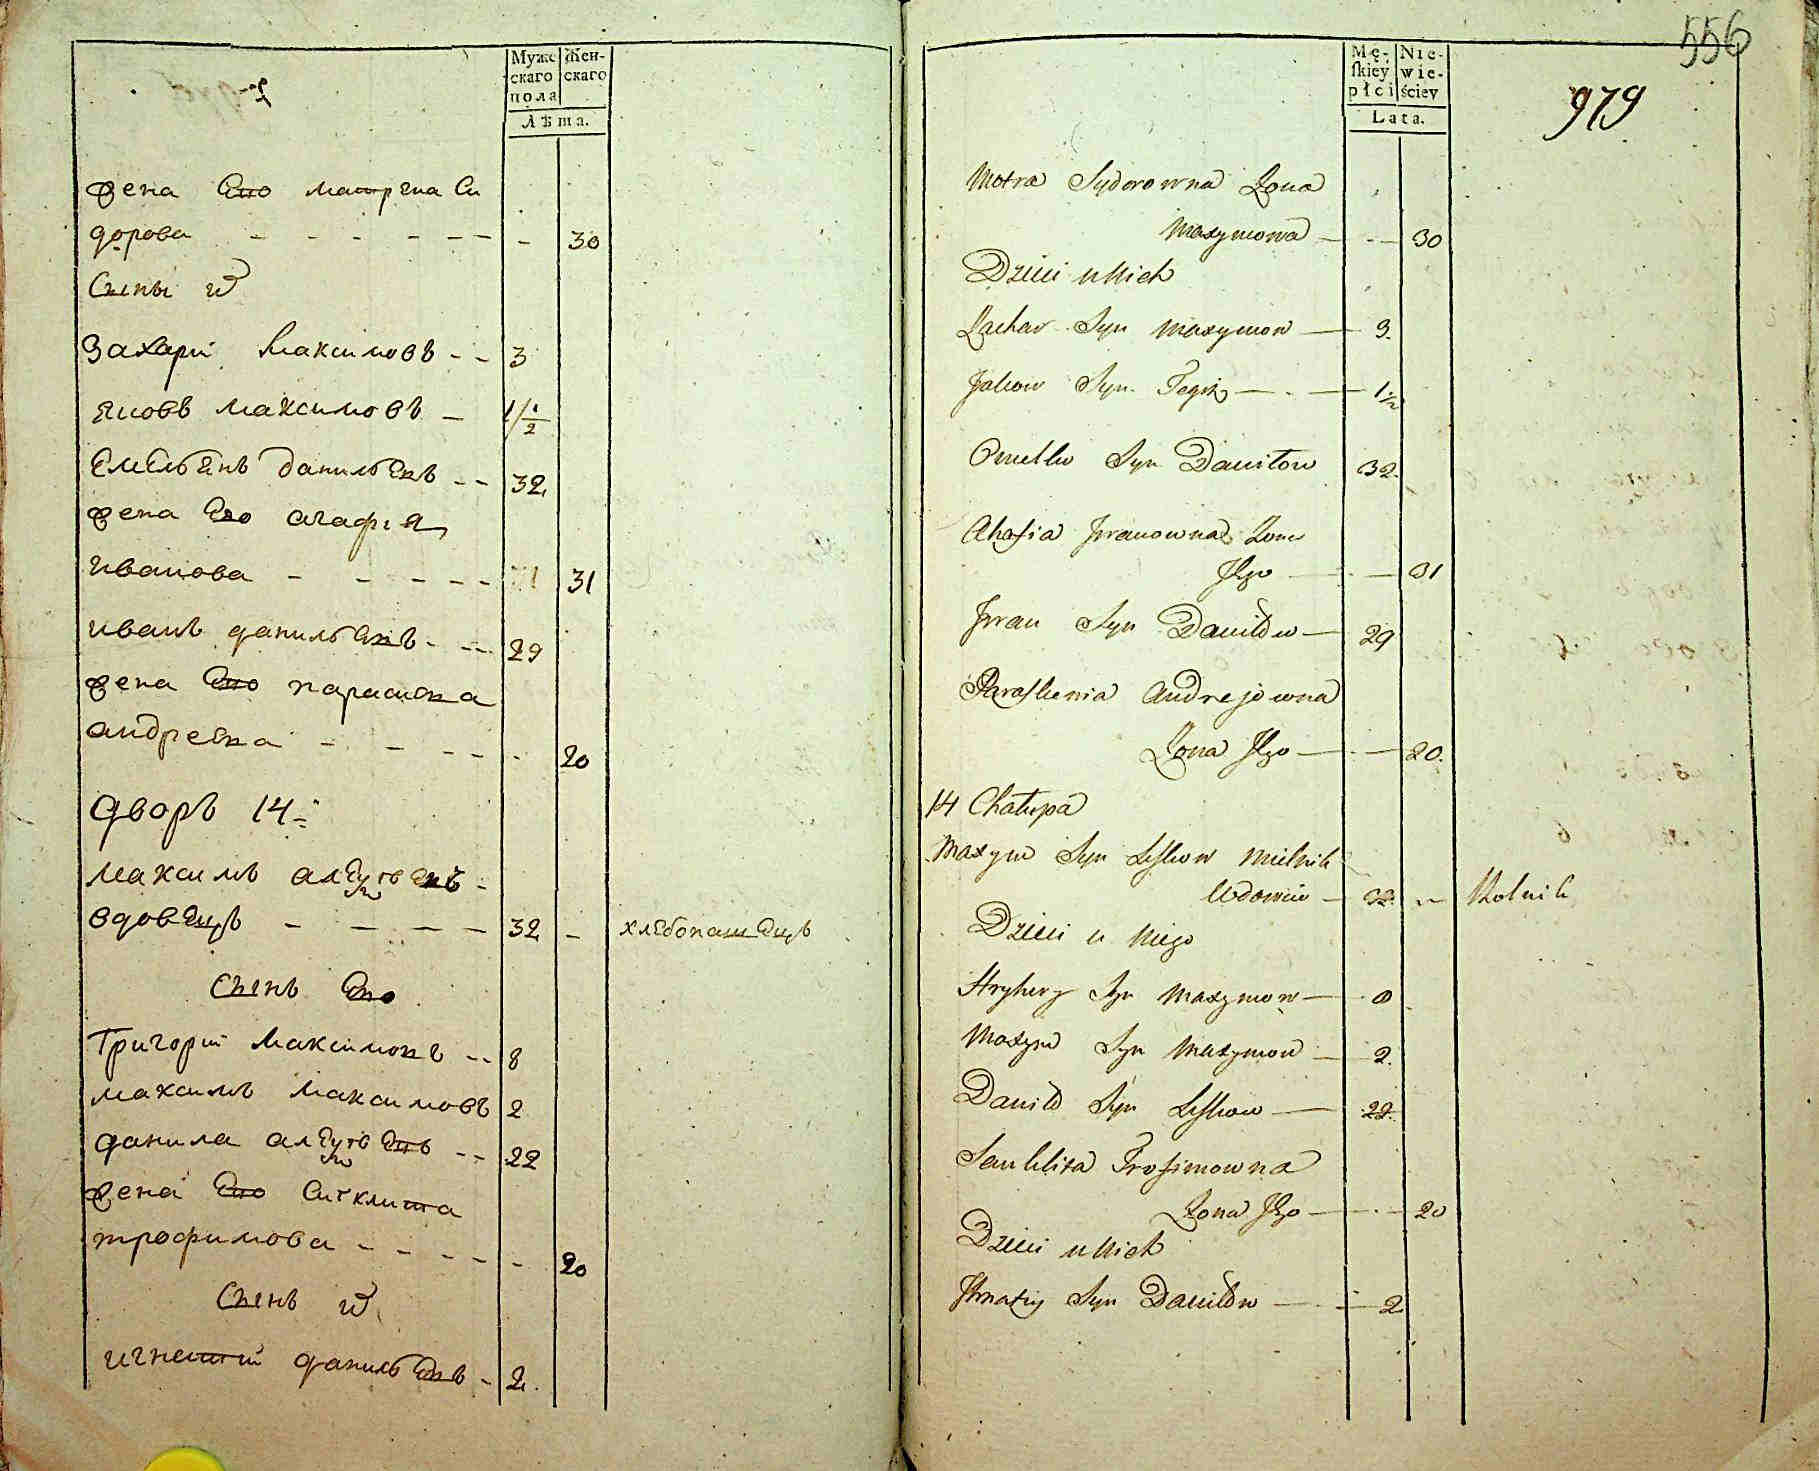 Муже
скаго
пола
Жен-
скаго
Лѣта.
жена Его матрена Си
дорова - - - - - - - - 30
Сыны их
Захарій Максимовъ - - 3
Яковъ максимовъ - 1/1/2
Емельянъ данильевъ - - 32
жена Его агафия
иванова - - - - - 31
иванъ данильевъ - - - 29
жена Его параскева
андреева - - - - - 20
дворъ 14:
максимъ
вдовецъ - - - - 32 - хлебопашецъ
Сынъ Его
Григорій Максимовъ - - 8
максимъ Максимовъ 2
данила - - 22
жена Его Сигклита
трофимова - - - - - 20
Сынъ их
игнатий данильевъ - 2.
556
Mę-
skiey
płci
Nie-
wie-
ściey
Lata.
979
Motra Sydorowna Zona
Maxymowa — - — 30
Dzieci u Nich
Zachar Syn Maxymow — 3.
Jakow Syn Tegoż — . — 1½
Omelko Syn Daniłow 32.
Ahafia Iwanowna Zona
Jego — . — 31
Iwan Syn Daniłow — 29
Paraskewia Andrejowna
Zona Jego — . — 20.
14 Chałupa
Maxym Syn Leskow Mielnik
Wdowiec — 32. -- Rolnik
Dzieci u Niego
Hryhory Syn Maxymow — . 8
Maxym Syn Maxymow — 2.
Daniło Syn Leskow — 22.
Sanklita Trofimowna
Zona Jego — . — 20
Dzieci u Nich
Ihnatiy Syn Daniłow — . — 2